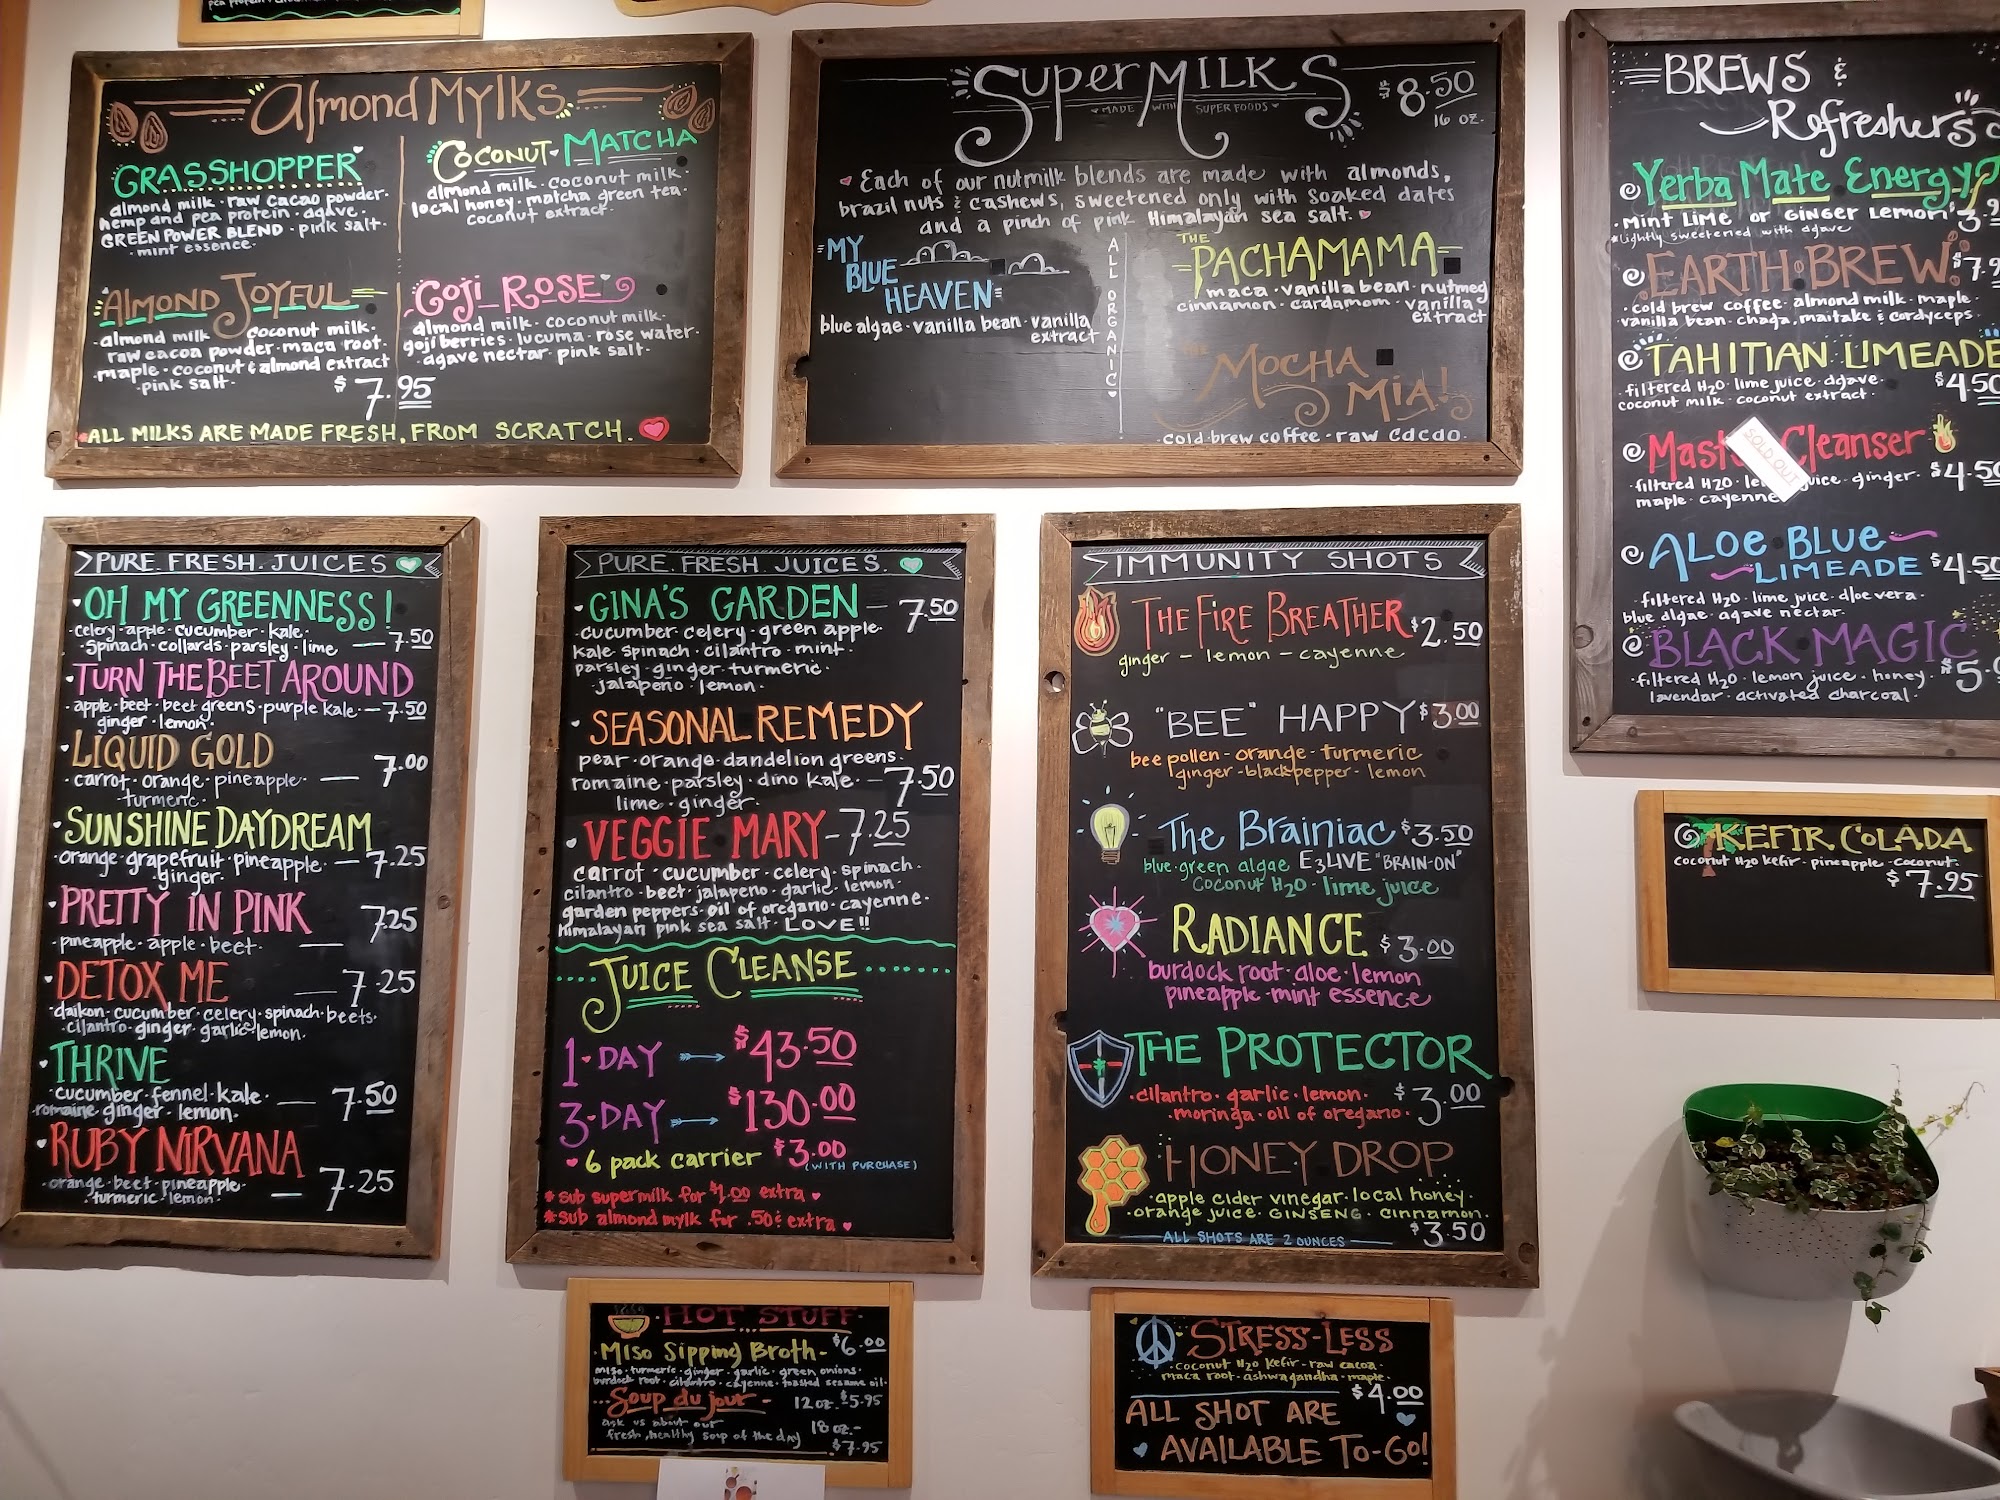 Almond Mylks
GRASSHOPPER
almond milk · raw cacao powder ·
hemp and pea protein · agave ·
GREEN POWER BLEND · pink salt ·
· mint essence ·
COCONUT · MATCHA
almond milk · coconut milk ·
local honey · matcha green tea ·
coconut extract ·
ALMOND JOYFUL
· almond milk · coconut milk ·
raw cacoa powder · maca root ·
· maple · coconut & almond extract
· pink salt ·
GOJI ROSE
almond milk · coconut milk ·
goji berries · lucuma · rose water ·
· agave nectar · pink salt ·
$7.95
*ALL MILKS ARE MADE FRESH, FROM SCRATCH.
SUPER MILKS
MADE WITH SUPER FOODS
$8.50
16 oz.
Each of our nutmilk blends are made with almonds,
brazil nuts & cashews, sweetened only with soaked dates
and a pinch of pink Himalayan sea salt.
MY
BLUE
HEAVEN
blue algae · vanilla bean · vanilla
extract
ALL ORGANIC
THE
PACHAMAMA
maca · vanilla bean · nutmeg
cinnamon · cardamom · vanilla
extract
THE
MOCHA
MIA!
· cold brew coffee · raw cacao ·
BREWS &
Refreshers
Yerba Mate Energy
· MINT LIME or GINGER LEMON · 3.9
*lightly sweetened with agave
EARTH BREW $7.9
· cold brew coffee · almond milk · maple ·
vanilla bean · chaga, maitake & cordyceps ·
TAHITIAN LIMEADE
· filtered H2O · lime juice · agave · $4.50
coconut milk · coconut extract ·
Mast Cleanser
SOLD OUT
· filtered H2O · le juice · ginger · $4.50
maple · cayenne
ALOE BLUE
LIMEADE $4.50
· filtered H2O · lime juice · aloe vera ·
blue algae · agave nectar ·
BLACK MAGIC
· filtered H2O · lemon juice · honey · $5.
lavendar · activated charcoal ·
PURE. FRESH. JUICES
· OH MY GREENNESS!
· celery · apple · cucumber · kale ·
· spinach · collards · parsley · lime — 7.50
· TURN THE BEET AROUND
· apple · beet · beet greens · purple kale · — 7.50
ginger · lemon ·
· LIQUID GOLD
· carrot · orange · pineapple · — 7.00
· turmeric ·
· SUNSHINE DAYDREAM
· orange · grapefruit · pineapple · — 7.25
· ginger ·
· PRETTY IN PINK 7.25
· pineapple · apple · beet · —
· DETOX ME — 7.25
· daikon · cucumber · celery · spinach · beets ·
· cilantro · ginger · garlic · lemon ·
· THRIVE
· cucumber · fennel · kale · — 7.50
· romaine · ginger · lemon ·
· RUBY NIRVANA
· orange · beet · pineapple · — 7.25
· turmeric · lemon ·
PURE. FRESH. JUICES.
· GINA'S GARDEN — 7.50
· cucumber · celery · green apple ·
kale · spinach · cilantro · mint ·
parsley · ginger · turmeric ·
· jalapeño · lemon ·
· SEASONAL REMEDY
pear · orange · dandelion greens ·
romaine · parsley · dino kale · — 7.50
lime · ginger ·
· VEGGIE MARY — 7.25
carrot · cucumber · celery · spinach ·
cilantro · beet · jalapeño · garlic · lemon ·
garden peppers · oil of oregano · cayenne ·
himalayan pink sea salt · LOVE!!
JUICE CLEANSE
1-DAY → $43.50
3-DAY → $130.00
6 pack carrier $3.00
(WITH PURCHASE)
* sub supermilk for $1.00 extra
* sub almond mylk for .50¢ extra
IMMUNITY SHOTS
THE FIRE BREATHER $2.50
ginger – lemon – cayenne
"BEE" HAPPY $3.00
bee pollen – orange – turmeric
ginger – black pepper – lemon
The Brainiac $3.50
blue · green algae E3LIVE "BRAIN-ON"
coconut H2O · lime juice
RADIANCE $3.00
burdock root · aloe · lemon
pineapple · mint essence
THE PROTECTOR
· cilantro · garlic · lemon · $3.00
· moringa · oil of oregano ·
HONEY DROP
· apple cider vinegar · local honey ·
· orange juice · GINSENG · cinnamon ·
$3.50
ALL SHOTS ARE 2 OUNCES
KEFIR COLADA
coconut H2O kefir · pineapple · coconut ·
$7.95
HOT STUFF
· Miso Sipping Broth - $6.00
miso · turmeric · ginger · garlic · green onions ·
burdock root · cilantro · cayenne · toasted sesame oil ·
Soup du jour - 12oz. $5.95
ask us about our
fresh, healthy soup of the day
16oz. -
$7.95
STRESS-LESS
· coconut H2O kefir · raw cacoa ·
maca root · ashwagandha · maple ·
$4.00
ALL SHOT ARE
AVAILABLE TO-GO!